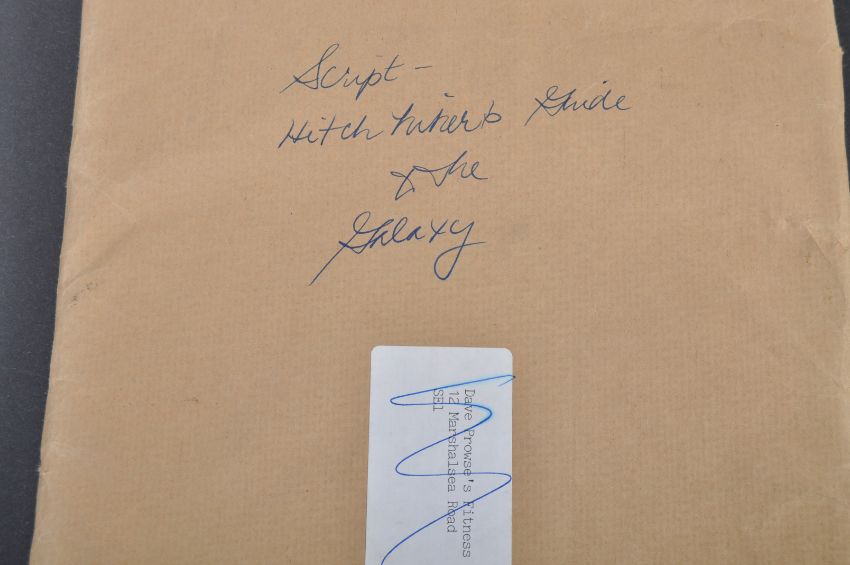 Script -
Hitch hiker's Guide
& the
Galaxy
Dave Prowse's Fitness
12 Marshalsea Road
SE1